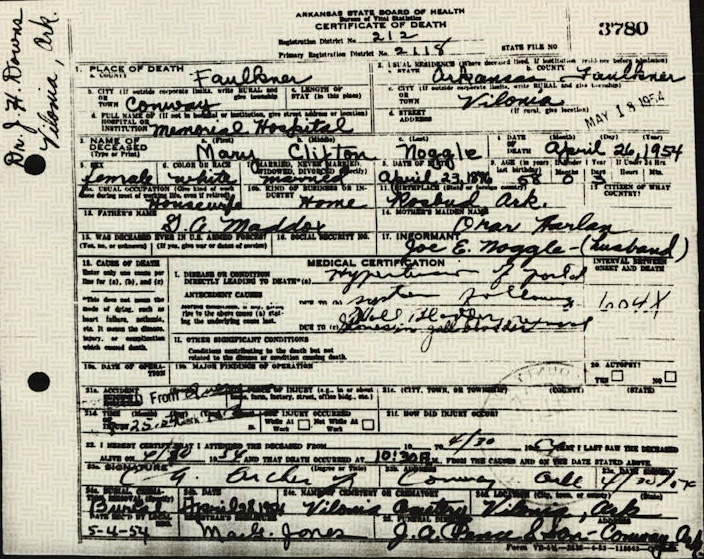 ARKANSAS STATE BOARD OF HEALTH
Bureau of Vital Statistics
CERTIFICATE OF DEATH
3780
Registration District No. 212
Primary Registration District No. 2118
STATE FILE NO
Dr. J. H. Downs
Vilonia, Ark.
1. PLACE OF DEATH
a. COUNTY Faulkner
2. USUAL RESIDENCE (Where deceased lived. If institution: residence before admission)
a. STATE Arkansas b. COUNTY Faulkner
b. CITY (If outside corporate limits, write RURAL and give township)
OR TOWN Conway
c. LENGTH OF STAY (in this place)
c. CITY (If outside corporate limits, write RURAL and give township)
OR TOWN Vilonia
d. FULL NAME OF (If not in hospital or institution, give street address or location)
HOSPITAL OR INSTITUTION Memorial Hospital
d. STREET ADDRESS (If rural, give location)
MAY 18 1954
3. NAME OF DECEASED (Type or Print)
a. (First) Mary b. (Middle) Clifton c. (Last) Noggle
4. DATE OF DEATH (Month) (Day) (Year) April 26, 1954
5. SEX female
6. COLOR OR RACE white
7. MARRIED, NEVER MARRIED, WIDOWED, DIVORCED (Specify) married
8. DATE OF BIRTH April 23, 1896
9. AGE (in years last birthday) 58 0 3
10a. USUAL OCCUPATION (Give kind of work done during most of working life, even if retired) Housewife
10b. KIND OF BUSINESS OR INDUSTRY Home
11. BIRTHPLACE (State or foreign country) Rosbud Ark.
12. CITIZEN OF WHAT COUNTRY?
13. FATHER'S NAME D. A. Maddox
14. MOTHER'S MAIDEN NAME Orar Harlan
15. WAS DECEASED EVER IN U.S. ARMED FORCES?
(Yes, no, or unknown) (If yes, give war or dates of service)
16. SOCIAL SECURITY NO.
17. INFORMANT Joe E. Noggle - (husband)
18. CAUSE OF DEATH
Enter only one cause per line for (a), (b), and (c)
MEDICAL CERTIFICATION
INTERVAL BETWEEN ONSET AND DEATH
I. DISEASE OR CONDITION DIRECTLY LEADING TO DEATH* (a) Hypertension of portal
*This does not mean the mode of dying, such as heart failure, asthenia, etc. It means the disease, injury, or complication which caused death.
ANTECEDENT CAUSES
DUE TO (b) system following
rise to the above cause (a) stating the underlying cause last.
DUE TO (c) gall bladder
II. OTHER SIGNIFICANT CONDITIONS
Conditions contributing to the death but not related to the disease or condition causing death.
19a. DATE OF OPERATION
19b. MAJOR FINDINGS OF OPERATION
20. AUTOPSY?
YES NO
21a. ACCIDENT
PLACE OF INJURY (e.g., in or about home, farm, factory, street, office bldg., etc.)
21c. (CITY, TOWN, OR TOWNSHIP) (COUNTY) (STATE)
21d. TIME (Month) (Day)
INJURY OCCURRED
While At Work Not While At Work
21f. HOW DID INJURY OCCUR?
22. I HEREBY CERTIFY THAT I ATTENDED THE DECEASED FROM 4/30 THAT I LAST SAW THE DECEASED
ALIVE ON 54 AND THAT DEATH OCCURRED AT 10:30 M., FROM THE CAUSES AND ON THE DATE STATED ABOVE
23a. SIGNATURE (Degree or Title) C. A. Archer Jr
23b. ADDRESS Conway Ark
23c. DATE SIGNED 4/30/54
24a. BURIAL, CREMATION, REMOVAL (Specify) Burial
24b. DATE April 28, 1954
24c. NAME OF CEMETERY OR CREMATORY Vilonia Cemetery
24d. LOCATION (City, town, or county) (State) Vilonia, Ark
DATE REC'D BY LOCAL REG. 5-4-54
REGISTRAR'S SIGNATURE Jones
25. FUNERAL DIRECTOR ADDRESS J. A. Pence & Son - Conway, Ark